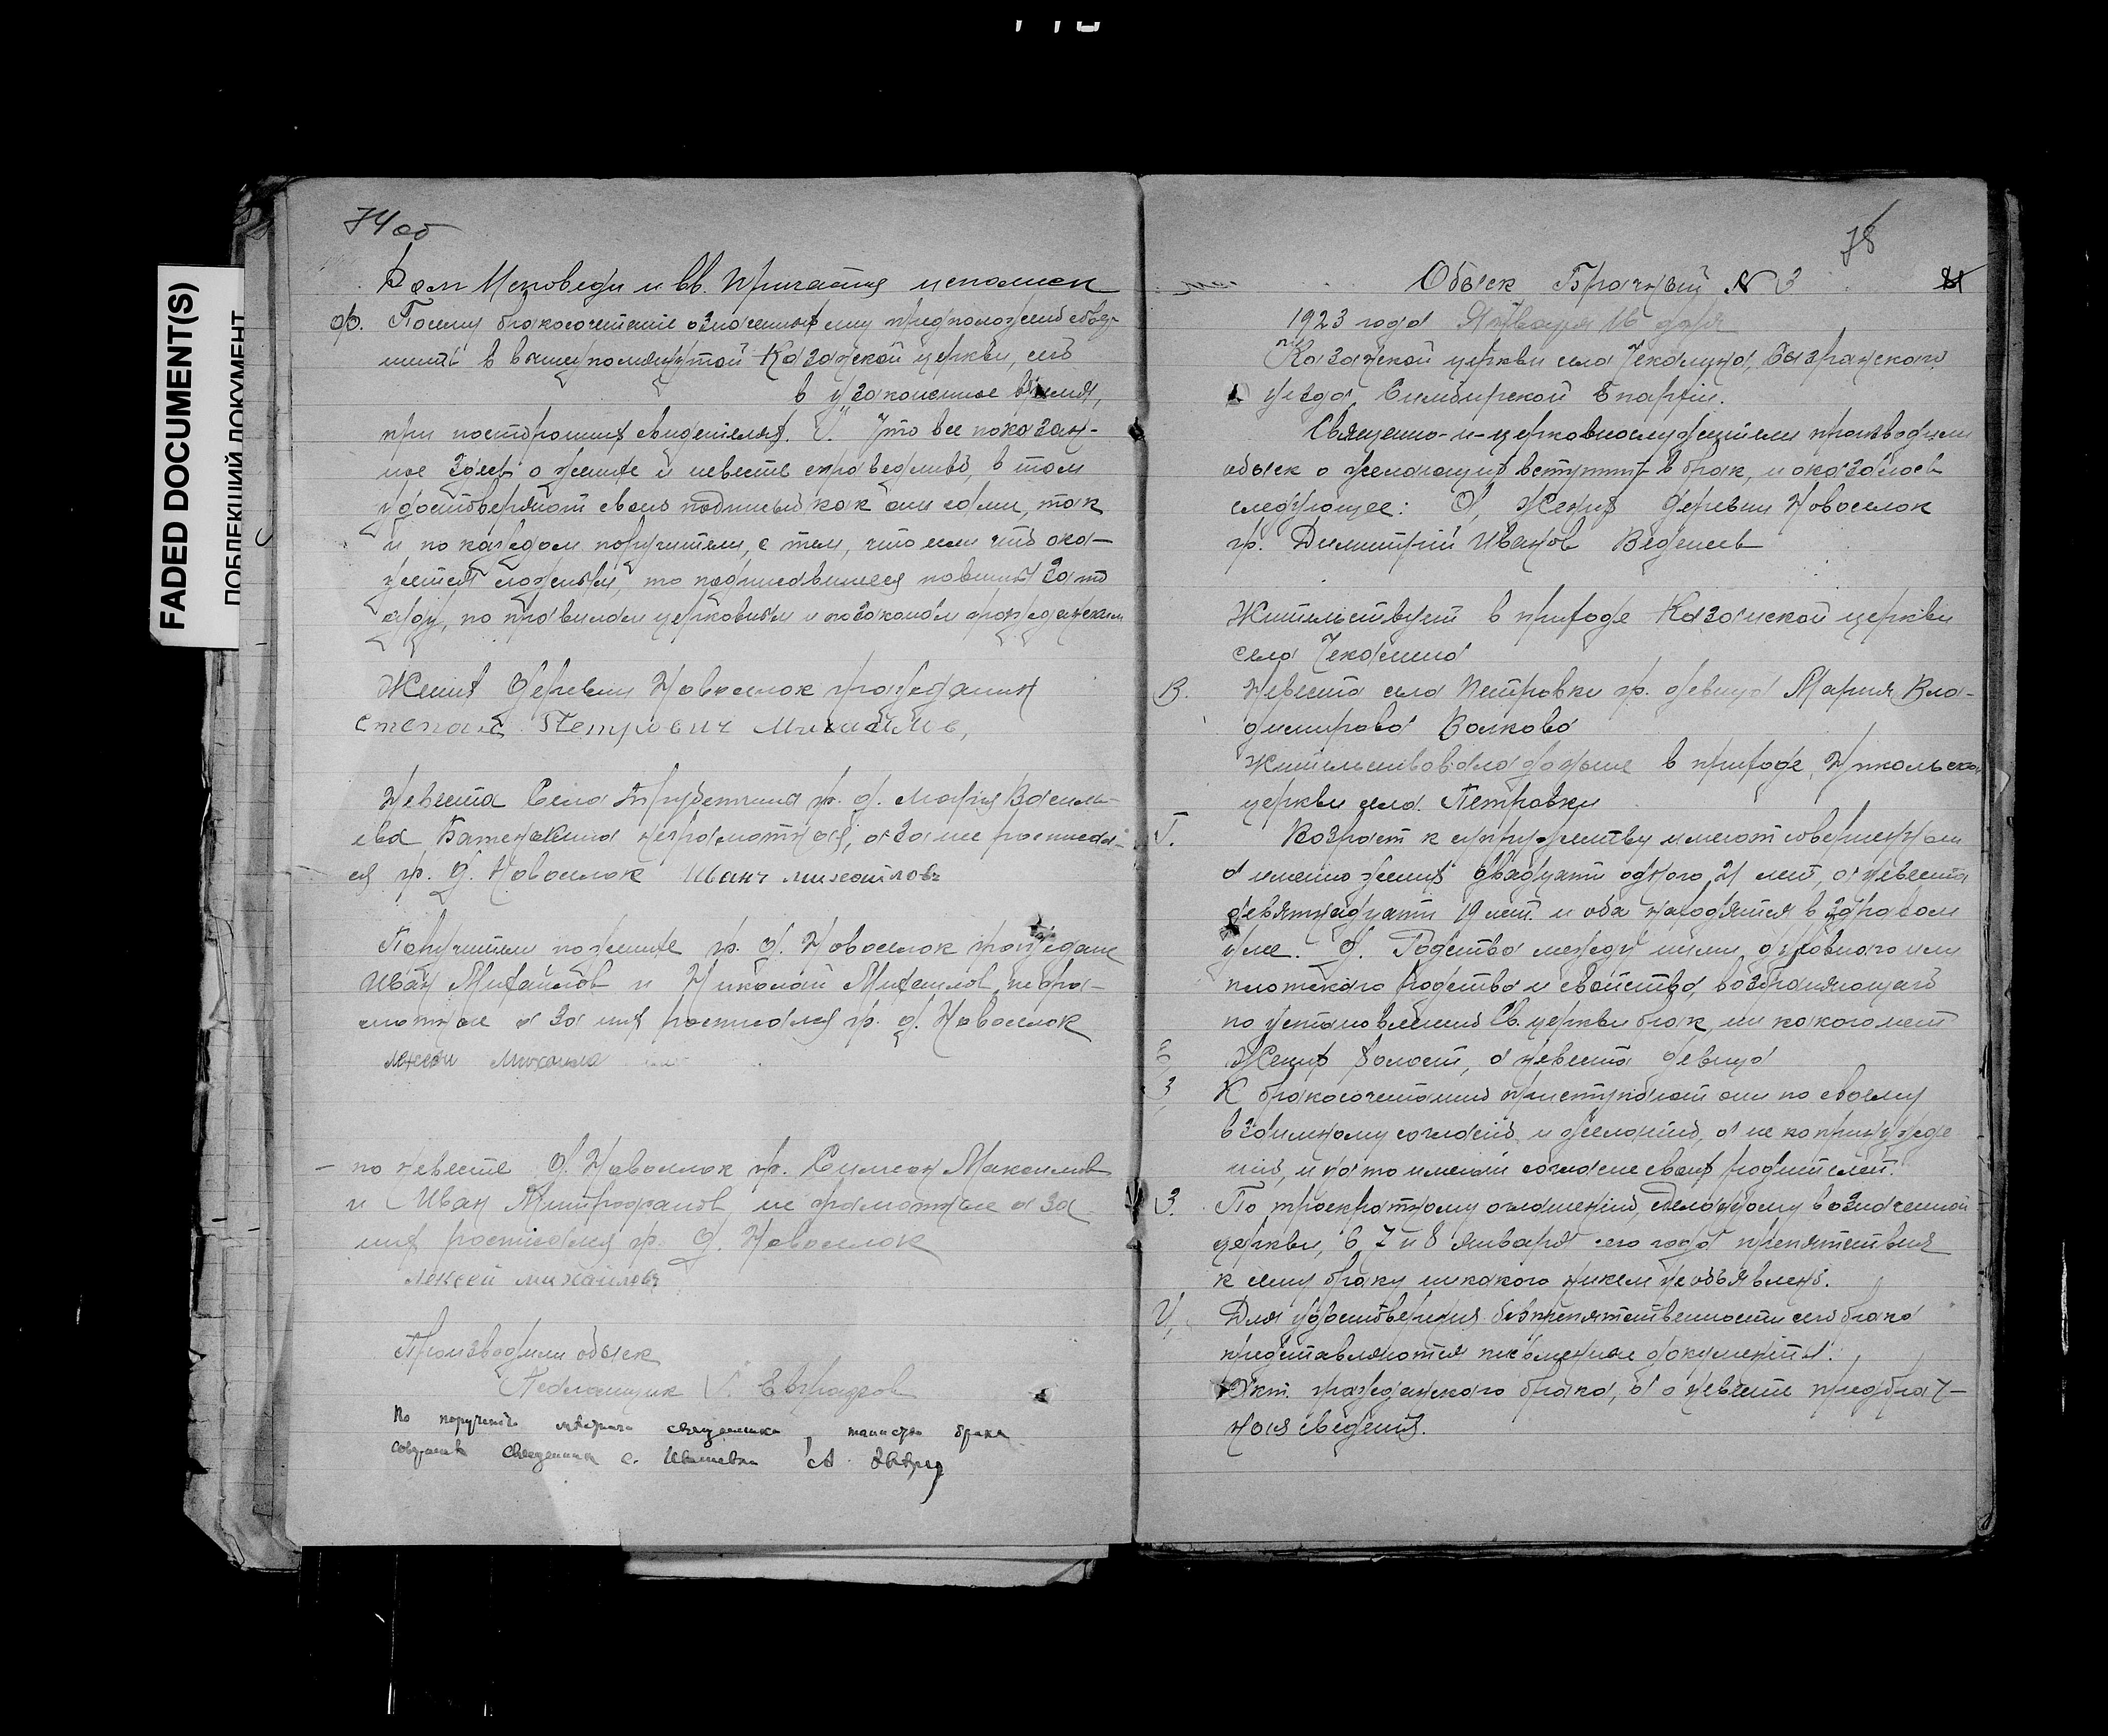 FADED DOCUMENT(S)
ПОБЛЕКШИЙ ДОКУМЕНТ
74 об
Долг Исповеди и Св. Причастия исполнен
Посему бракосочетание означенных лиц предположено совер-
шить в вышеупомянутой Казанской церкви, сего
в узаконенное время,
при посторонних свидетелях. Что все показан-
ное здесь о женихе и невесте справедливо, в том
удостоверяют своею подписью как они сами, так
и по каждом поручители, с тем, что если что ока-
жется ложным, то подписавшиеся повинны за то
суду, по правилам церковным и по законам гражданским
Жених деревни Новоселок гражданин
степанъ Петрович Михайлов,
Невеста Села гр. д. Мария Василь-
ева неграмотная, а за нее расписал-
ся гр. д. Новоселок Иванъ михайловъ
Поручители по женихе гр. д. Новоселок граждане
Иван Михайлов и Николай Михайлов, негра-
мотные а за них расписался гр. д. Новоселок
по невесте д. Новоселок гр. Симеон Максимов
и Иван Митрофанов не грамотные а за
них расписался гр. д. Новоселок
Алексей михайловъ
Производили обыск
Псаломщик
По поручению местного священника, таинство брака
совершил Священник с.
75
Обыск Брачный № 3
1923 года Января 16 дня
Казанской церкви села Чекалина, Сызранского
уезда, Симбирской Епархии.
Священно-и-церковнослужители производили
обыск о желающих вступить в брак, и оказалось
следующее: А, Жених деревни Новоселок
гр. Димитрий Иванов Веденеев
Жительствует в приходе Казанской церкви
села Чекалина
В. Невеста села Петровки гр. девица Мария Вла-
димирова Волкова
Жительствовала доныне в приходе, Никольской
церкви села Петровки
Г. Возраст к супружеству имеют совершенный
а именно жених двадцати одного 21 лет, а невеста
девятнадцати 19 лет и оба находятся в здравом
уме. Д. Родства между ними духовного или
плотского родства и свойства, возбраняющаго
по установлению Св. церкви брак, ни какого нет
Е Жених холост, а невеста девица
К бракосочетанию приступают они по своему
взаимному согласию и желанию, а не по принужде
нию, и на то имеют согласие своих родителей.
З. По троекратному оглашению, сделанному в означенной
церкви, 6 7 и 8 января сего года препятствия
к сему браку никакого никем не объявлено.
И, Для удостоверения безпрепятственности сего брака
представляются письменные документы:
Акт гражданского брака, а о невесте предбрач-
ная сведения.